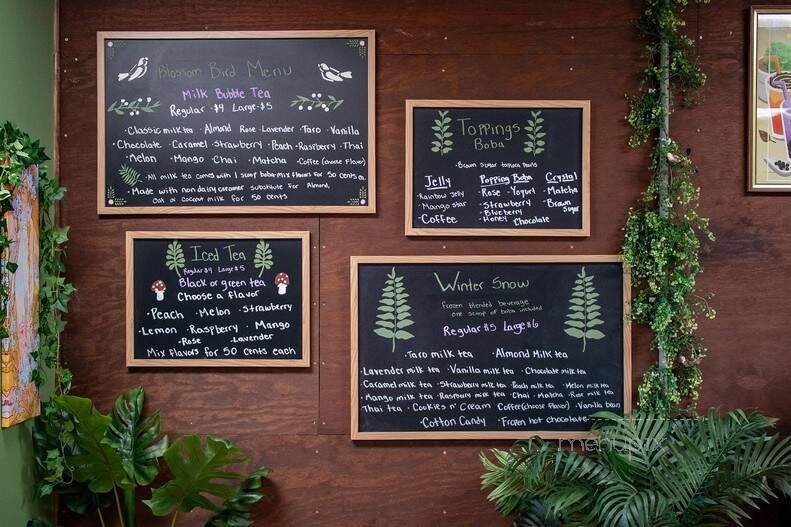 Blossom Bird Menu
Milk Bubble Tea
Regular $4 Large $5
·Classic milk tea ·Almond ·Rose ·Lavender ·Taro ·Vanilla
·Chocolate ·Caramel ·Strawberry ·Peach ·Raspberry ·Thai
·Melon ·Mango ·Chai ·Matcha ·Coffee (choose flavor)
·All milk tea comes with 1 scoop boba · mix flavors for 50 cents ea.
·Made with non dairy creamer substitute for Almond,
Oat or coconut milk for 50 cents
Toppings
Boba
·Brown sugar tapioca pearls
Jelly
·Rainbow jelly
·Mango star
·Coffee
Popping Boba
·Rose ·Yogurt
·Strawberry
·Blueberry
·Honey ·Chocolate
Crystal
·Matcha
·Brown
sugar
Iced Tea
Regular $4 Large $5
Black or green tea
Choose a flavor
·Peach ·Melon ·Strawberry
·Lemon ·Raspberry ·Mango
·Rose ·Lavender
Mix flavors for 50 cents each
Winter Snow
Frozen blended beverage
one scoop of boba included
Regular $5 Large $6
·Taro milk tea ·Almond Milk tea
·Lavender milk tea ·Vanilla milk tea ·Chocolate milk tea
·Caramel milk tea ·Strawberry milk tea ·Peach milk tea ·Melon milk tea
·Mango milk tea ·Raspberry milk tea ·Chai ·Matcha ·Rose milk tea
·Thai tea ·Cookies n' Cream ·Coffee (choose flavor) ·Vanilla bean
·Cotton Candy ·Frozen hot chocolate
menupix